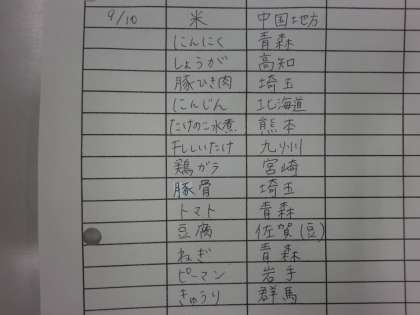 9/10 米 中国地方
にんにく 青森
しょうが 高知
豚ひき肉 埼玉
にんじん 北海道
たけのこ水煮 熊本
干ししいたけ 九州
鶏ガラ 宮崎
豚骨 埼玉
トマト 青森
豆腐 佐賀(豆)
ねぎ 青森
ピーマン 岩手
きゅうり 群馬